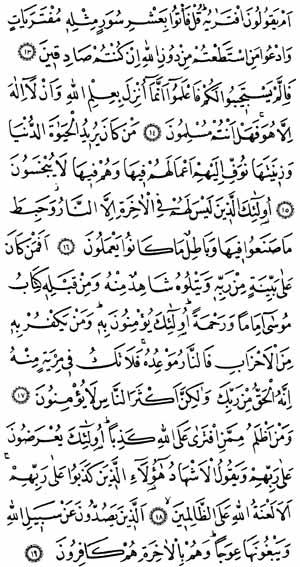 اَمْ يَقُولُونَ افْتَرٰيهُ قُلْ فَاْتُوا بِعَشْرِ سُوَرٍ مِثْلِه۪ مُفْتَرَيَاتٍ
وَادْعُوا مَنِ اسْتَطَعْتُمْ مِنْ دُونِ اللّٰهِ اِنْ كُنْتُمْ صَادِق۪ينَ ﴿١٣﴾
فَاِلَّمْ يَسْتَج۪يبُوا لَكُمْ فَاعْلَمُٓوا اَنَّمَٓا اُنْزِلَ بِعِلْمِ اللّٰهِ وَاَنْ لَٓا اِلٰهَ
اِلَّا هُوَ فَهَلْ اَنْتُمْ مُسْلِمُونَ ﴿١٤﴾ مَنْ كَانَ يُر۪يدُ الْحَيٰوةَ الدُّنْيَا
وَز۪ينَتَهَا نُوَفِّ اِلَيْهِمْ اَعْمَالَهُمْ ف۪يهَا وَهُمْ ف۪يهَا لَا يُبْخَسُونَ
﴿١٥﴾ اُو۬لٰٓئِكَ الَّذ۪ينَ لَيْسَ لَهُمْ فِي الْاٰخِرَةِ اِلَّا النَّارُ وَحَبِطَ
مَا صَنَعُوا ف۪يهَا وَبَاطِلٌ مَا كَانُوا يَعْمَلُونَ ﴿١٦﴾ اَفَمَنْ كَانَ
عَلٰى بَيِّنَةٍ مِنْ رَبِّه۪ وَيَتْلُوهُ شَاهِدٌ مِنْهُ وَمِنْ قَبْلِه۪ كِتَابُ
مُوسٰٓى اِمَامًا وَرَحْمَةً اُو۬لٰٓئِكَ يُؤْمِنُونَ بِه۪ وَمَنْ يَكْفُرْ بِه۪
مِنَ الْاَحْزَابِ فَالنَّارُ مَوْعِدُهُ فَلَا تَكُ ف۪ي مِرْيَةٍ مِنْهُ
اِنَّهُ الْحَقُّ مِنْ رَبِّكَ وَلٰكِنَّ اَكْثَرَ النَّاسِ لَا يُؤْمِنُونَ ﴿١٧﴾
وَمَنْ اَظْلَمُ مِمَّنِ افْتَرٰى عَلَى اللّٰهِ كَذِبًا اُو۬لٰٓئِكَ يُعْرَضُونَ
عَلٰى رَبِّهِمْ وَيَقُولُ الْاَشْهَادُ هٰٓؤُ۬لَٓاءِ الَّذ۪ينَ كَذَبُوا عَلٰى رَبِّهِمْ
اَلَا لَعْنَةُ اللّٰهِ عَلَى الظَّالِم۪ينَ ﴿١٨﴾ اَلَّذ۪ينَ يَصُدُّونَ عَنْ سَب۪يلِ اللّٰهِ
وَيَبْغُونَهَا عِوَجًا وَهُمْ بِالْاٰخِرَةِ هُمْ كَافِرُونَ ﴿١٩﴾